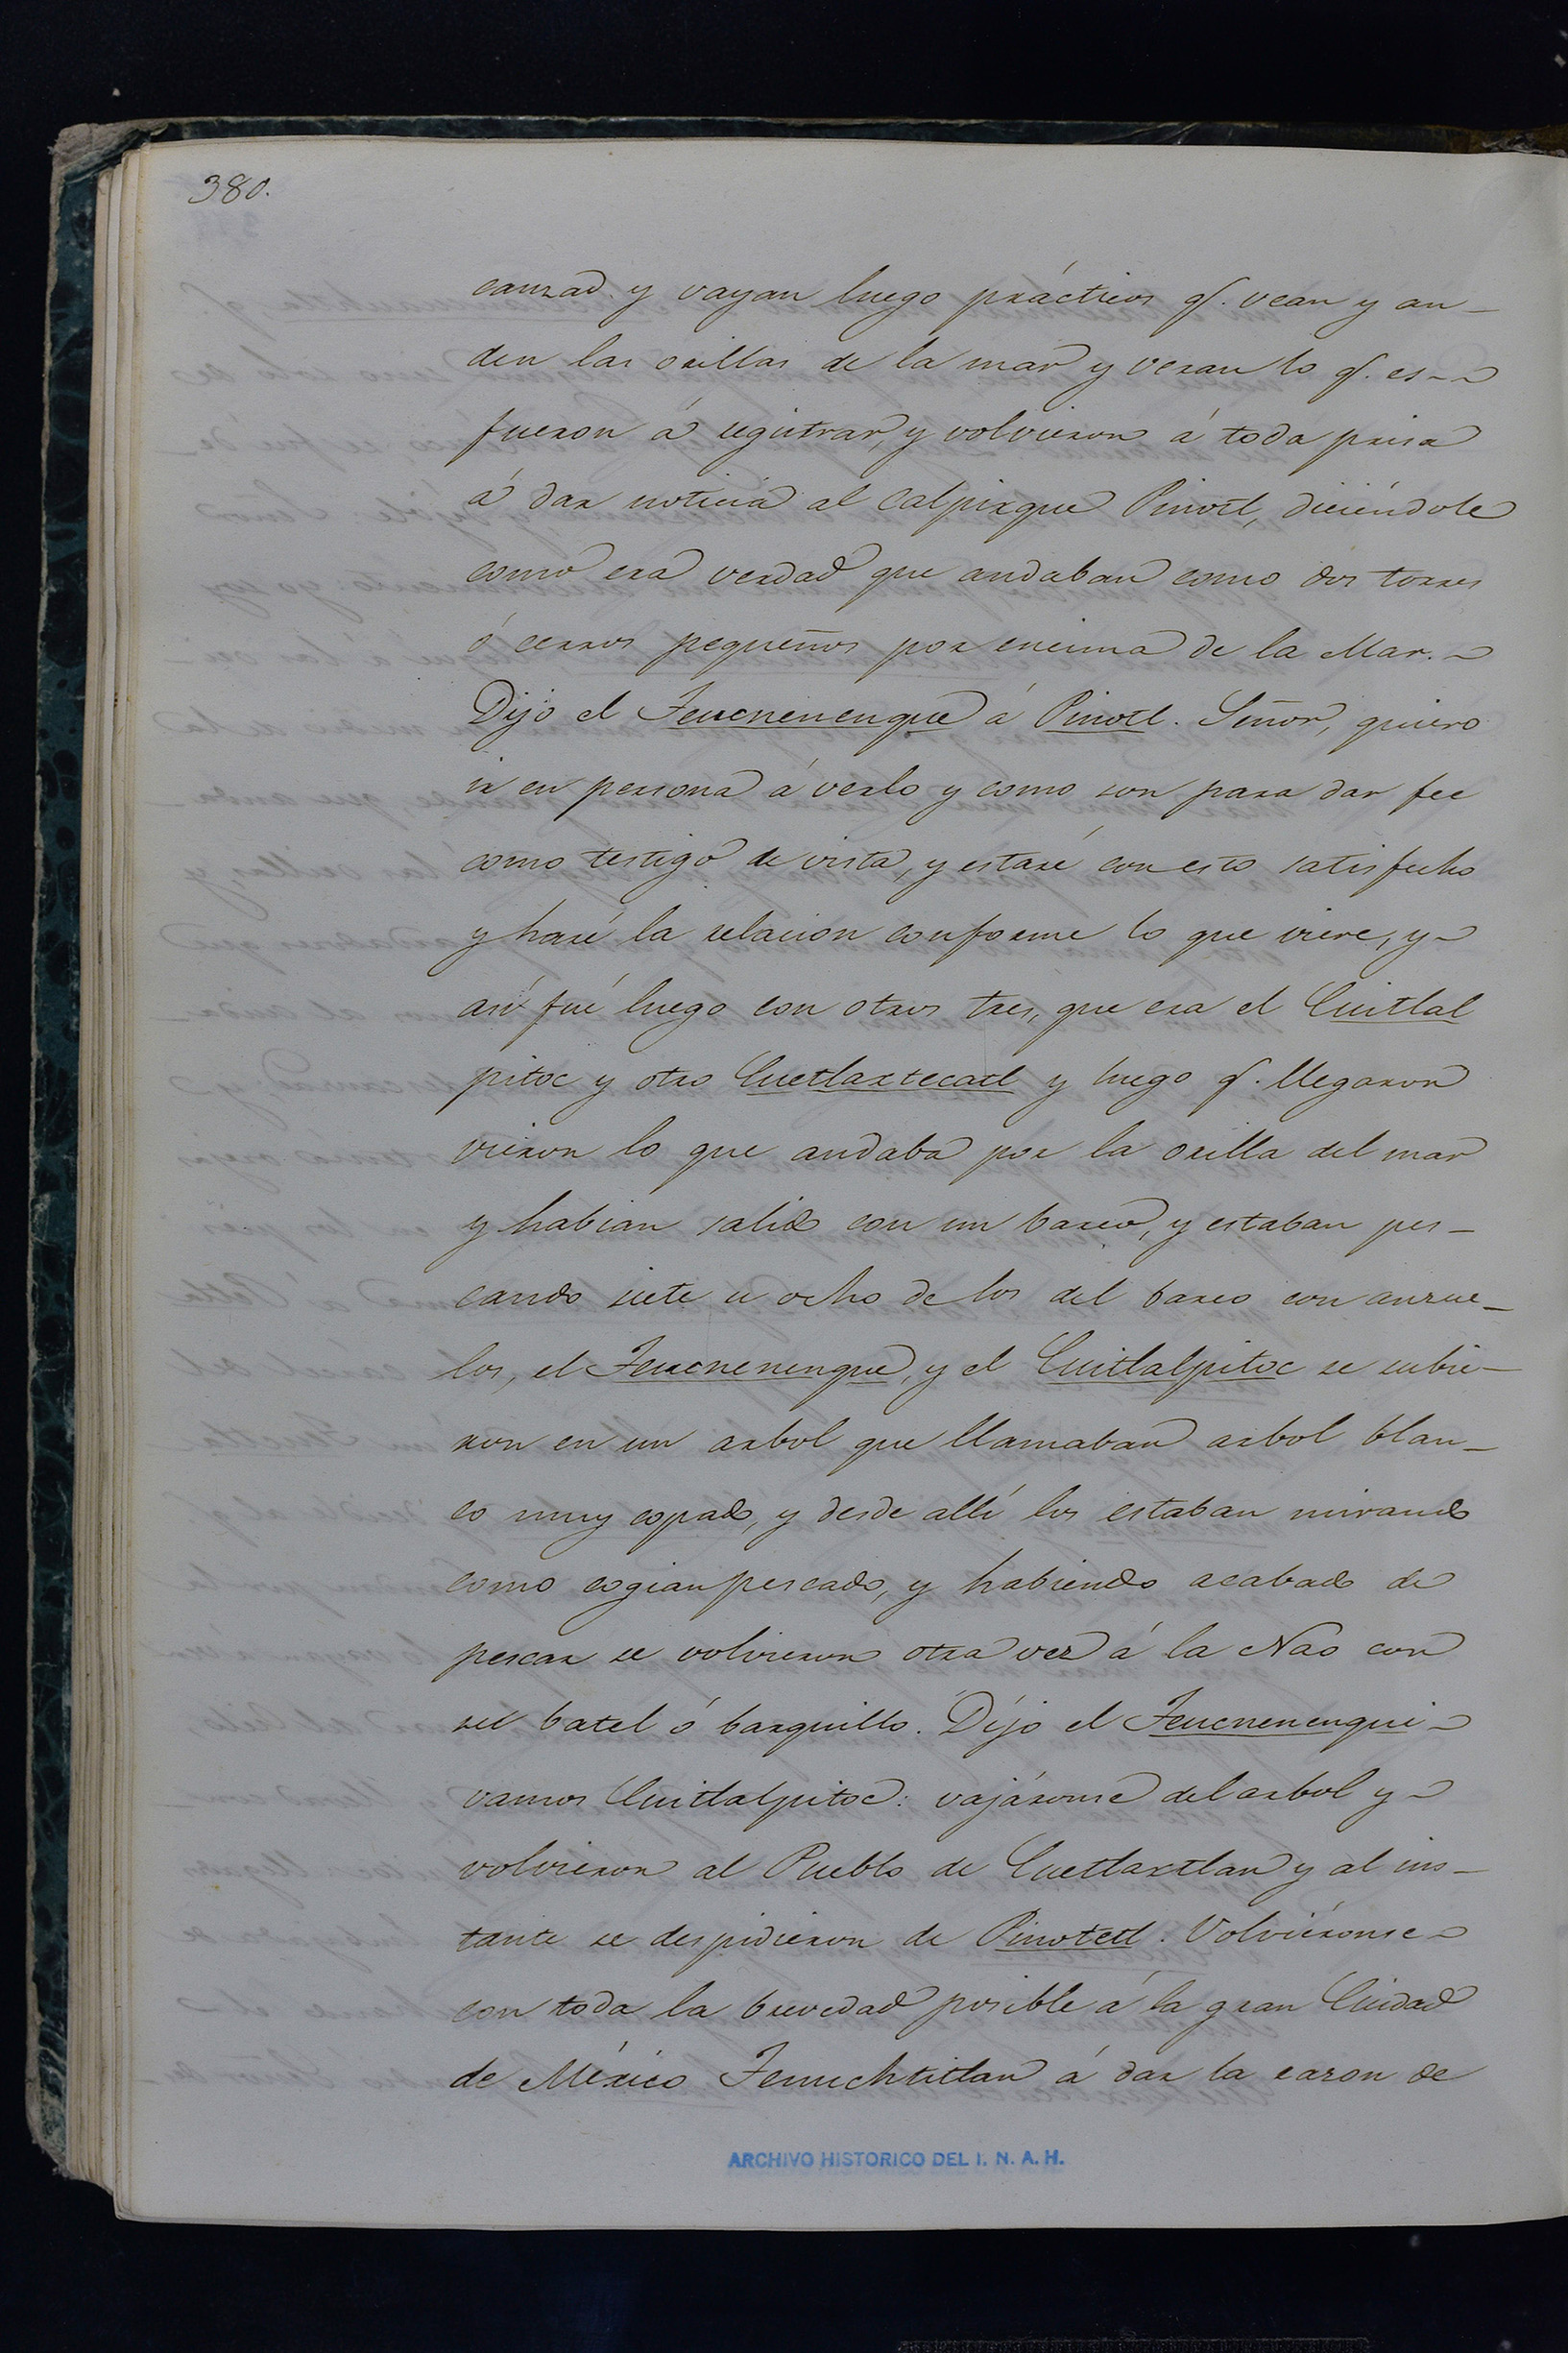 380.
canzad. y vayan luego prácticos q.ᵉ vean y an-
den las orillas de la mar y veran lo q.ᵉ es-
fueron á registrar, y volvieron á toda prisa
á dar noticia al Calpixque Pinotl, diciéndole
como era verdad que andaban como dos torres
ó cerros pequeños por encima de la Mar.-
Dijo el Teucnenenque á Pinotl. Señor, quiero
ir en persona á verlo y como son para dar fee
como testigo de vista, y estaré con esto satisfecho
y haré la relacion conforme lo que viere, y-
así fué luego con otros tres, que era el Cuitlal
pitoc y otro Cuetlaxtecatl y luego q.ᵉ llegaron
vieron lo que andaba por la orilla del mar
y habian salido con un barco, y estaban pes-
cando siete u ocho de los del barco con anzue-
los, el Teucnenenque, y el Cuitlalpitoc se subie-
ron en un arbol que llamaban arbol blan-
co muy copado, y desde allí los estaban mirando
como cogian pescado, y habiendo acabado de
pescar se volvieron otra vez á la Nao con
su batel ó barquillo. Díjo el Teucnenenqui-
vamos Cuitlalpitoc: vajáronse del arbol y-
volvieron al Pueblo de Cuetlaxtlan y al ins-
tante se despidieron de Pinotetl. Volviéronse-
con toda la brevedad posible á la gran Ciudad
de México Tenuchtitlan á dar la razon de
ARCHIVO HISTORICO DEL I. N. A. H.